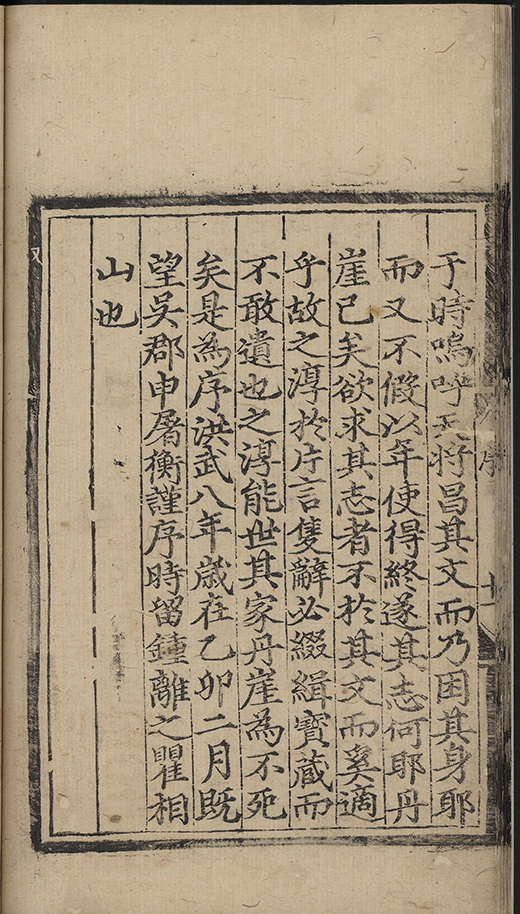 于時嗚呼天将昌其文而乃困其身耶
而又不假以年使得終遂其志何耶丹
崖已矣欲求其志者不於其文而奚適
乎故之淳於片言隻辭必綴緝寶藏而
不敢遺也之淳能世其家丹崖為不死
矣是為序洪武八年歳在乙卯二月既
望吳郡申屠衡謹序時留鍾離之瞿相
山也